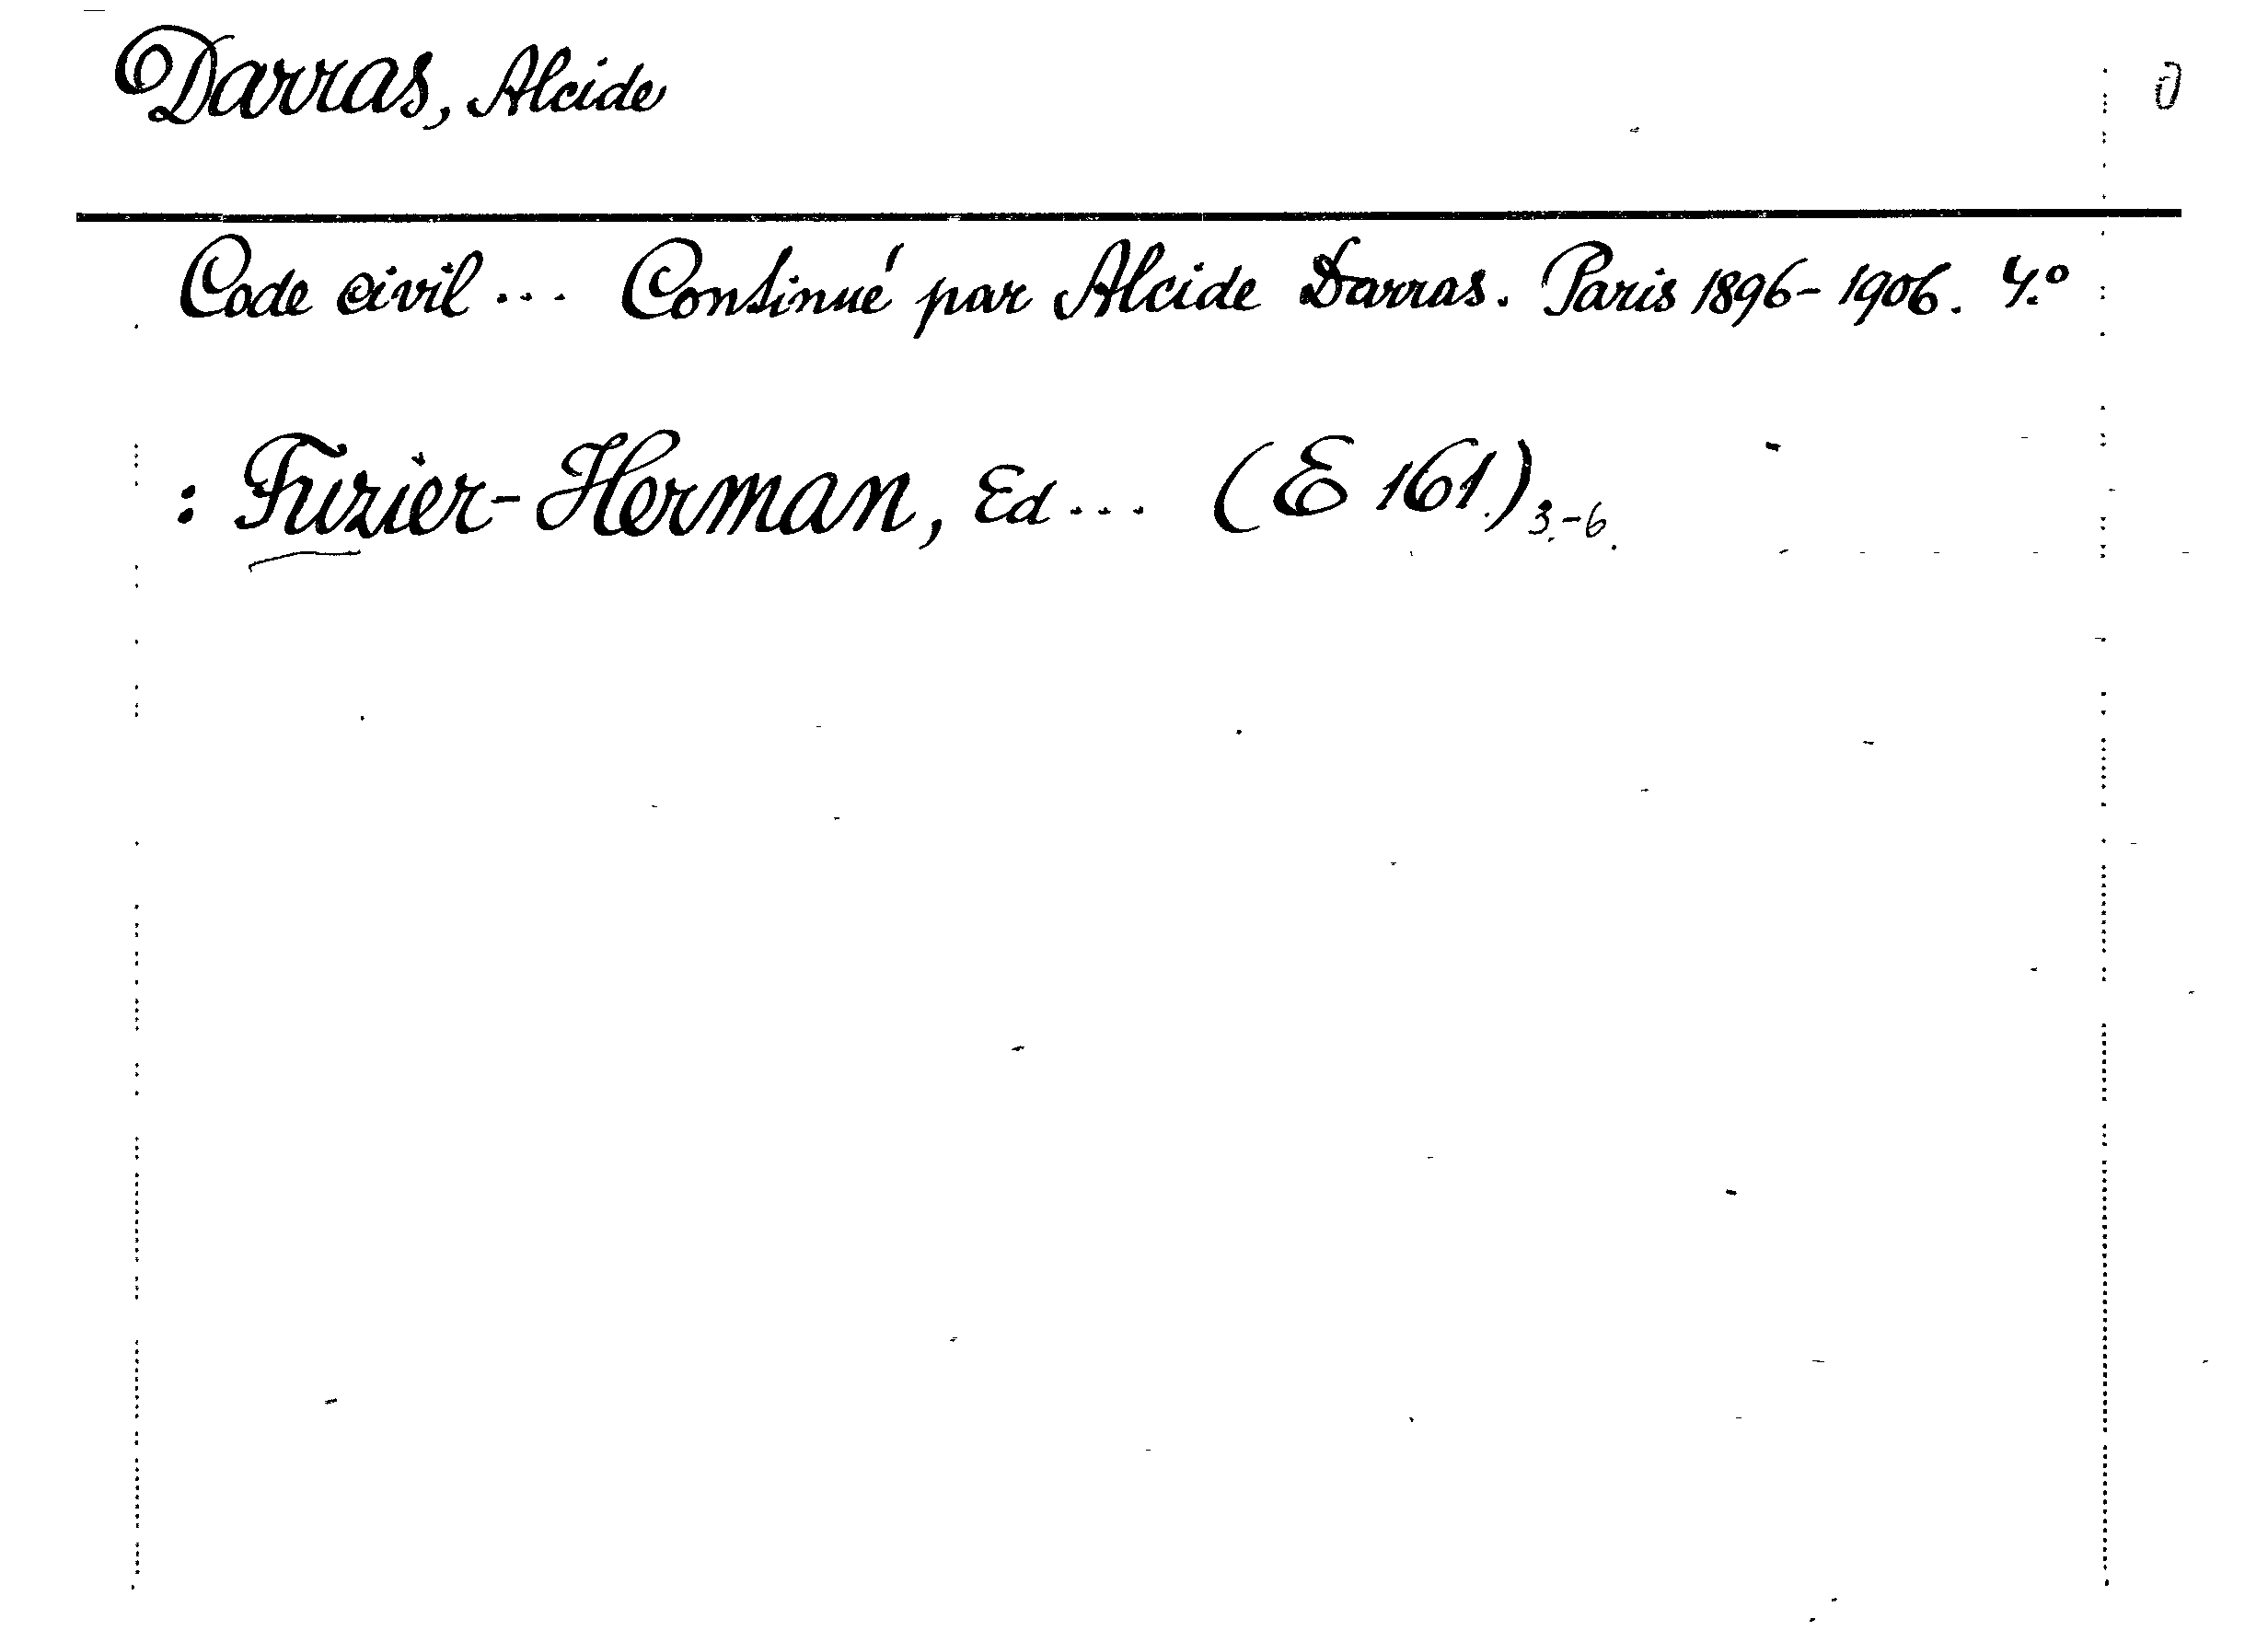 Darras, Alcide
Code civil ... Continué par Alcide Darras. Paris 1896-1906. 4.º
: Fuzier-Herman, Ed ... (E 161.) 3.-6.